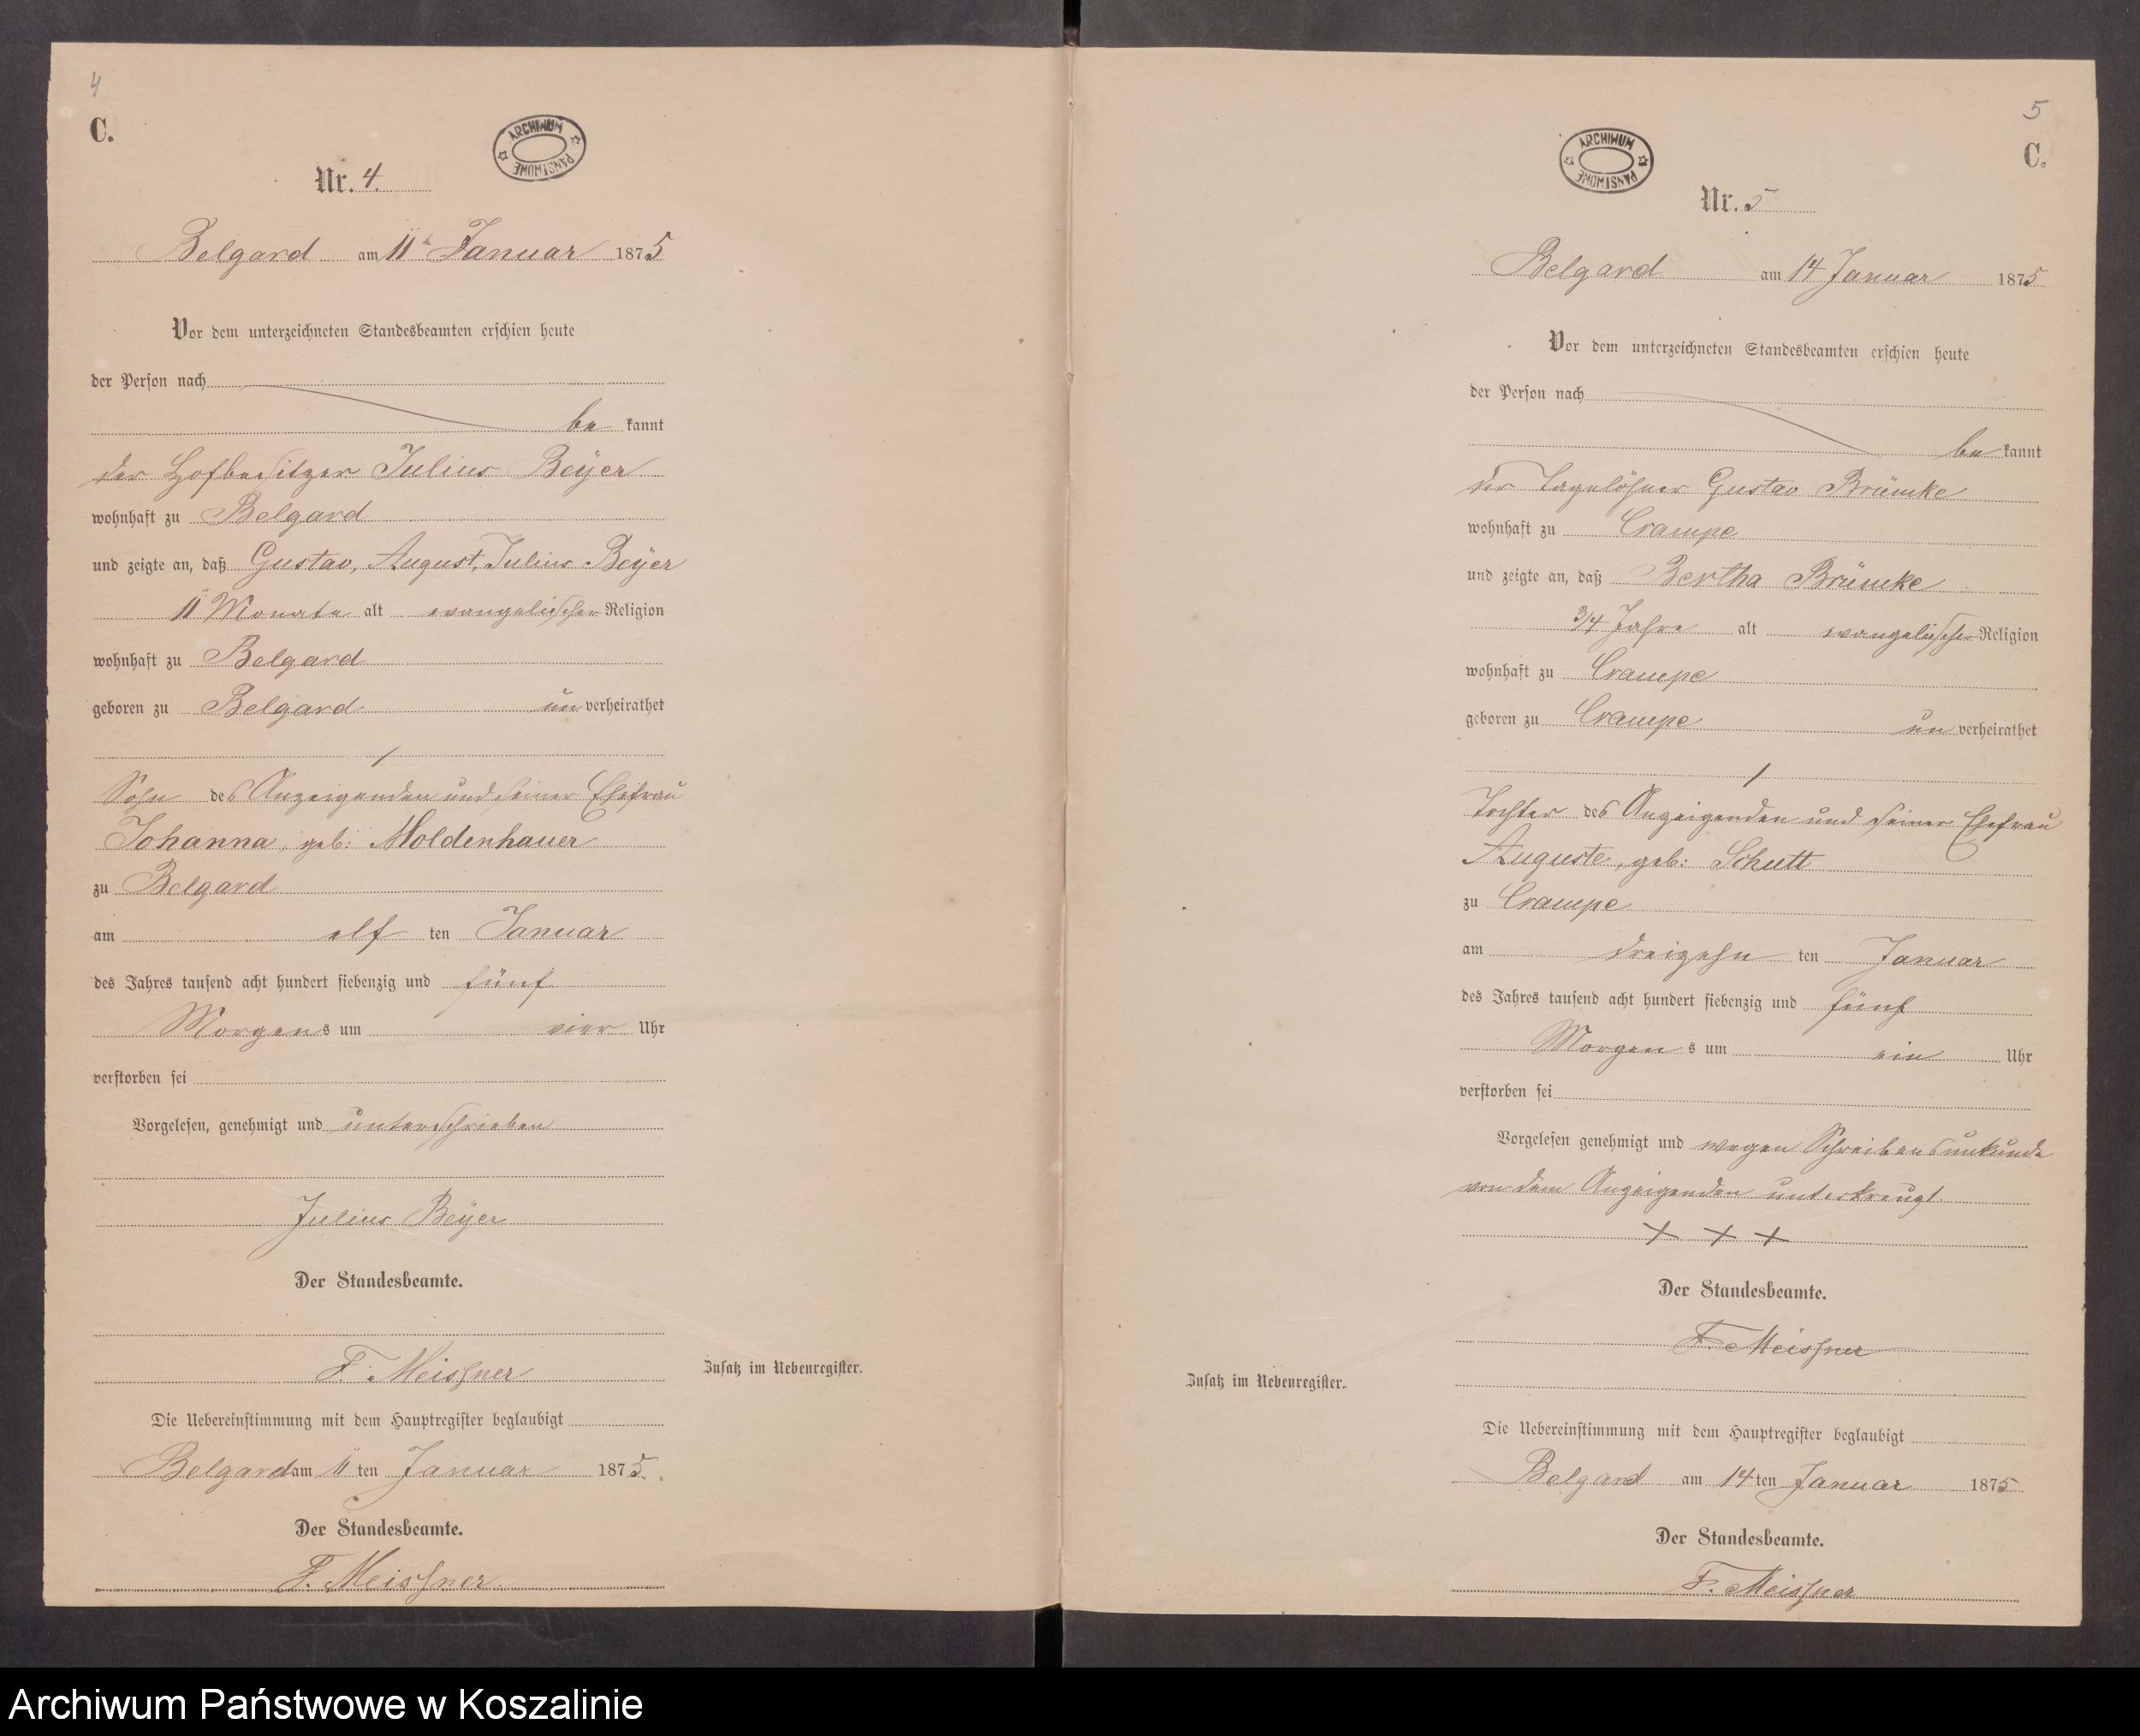 4
C.
ARCHIWUM PAŃSTWOWE
Nr. 4.
Belgard am 11ten Januar 1875
Vor dem unterzeichneten Standesbeamten erschien heute
der Person nach
be kannt
der Hofbesitzer Julius Beÿer
wohnhaft zu Belgard
und zeigte an, daß Gustav, August, Julius Beÿer
11 Monate alt evangelischer Religion
wohnhaft zu Belgard
geboren zu Belgard un verheirathet
/
Sohn des Anzeigenden und seiner Ehefrau
Johanna, geb: Moldenhauer
zu Belgard
am elf ten Januar
des Jahres tausend acht hundert siebenzig und fünf
Morgen s um vier Uhr
verstorben sei
Vorgelesen, genehmigt und unterschrieben
Julius Beÿer
Der Standesbeamte.
F. Meissner
Zusatz im Nebenregister.
Die Uebereinstimmung mit dem Hauptregister beglaubigt
Belgard am 11 ten Januar 1875.
Der Standesbeamte.
F. Meissner
5
C.
ARCHIWUM PAŃSTWOWE
Nr. 5
Belgard am 14 Januar 1875
Vor dem unterzeichneten Standesbeamten erschien heute
der Person nach
be kannt
der Tagelöhner Gustav Brümke
wohnhaft zu Crampe
und zeigte an, daß Bertha Brümke
3/4 Jahre alt evangelischer Religion
wohnhaft zu Crampe
geboren zu Crampe un verheirathet
/
Tochter des Anzeigenden und seiner Ehefrau
Auguste, geb: Schutt
zu Crampe
am dreizehn ten Januar
des Jahres tausend acht hundert siebenzig und fünf
Morgen s um ein Uhr
verstorben sei
Vorgelesen genehmigt und wegen Schreibensunkunde
von dem Anzeigenden unterkreuzt
+ + +
Der Standesbeamte.
F. Meissner
Zusatz im Nebenregister.
Die Uebereinstimmung mit dem Hauptregister beglaubigt
Belgard am 14 ten Januar 1875
Der Standesbeamte.
F. Meissner
Archiwum Państwowe w Koszalinie